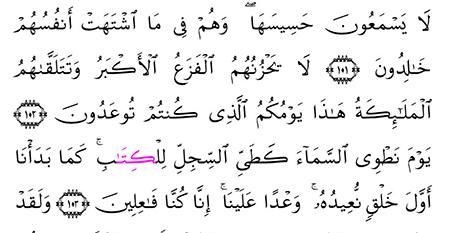 لَا يَسْمَعُونَ حَسِيسَهَا ۖ وَهُمْ فِي مَا ٱشْتَهَتْ أَنفُسُهُمْ
خَٰلِدُونَ ١٠١ لَا يَحْزُنُهُمُ ٱلْفَزَعُ ٱلْأَكْبَرُ وَتَتَلَقَّىٰهُمُ
ٱلْمَلَٰٓئِكَةُ هَٰذَا يَوْمُكُمُ ٱلَّذِي كُنتُمْ تُوعَدُونَ ١٠٢
يَوْمَ نَطْوِي ٱلسَّمَآءَ كَطَيِّ ٱلسِّجِلِّ لِلْكِتَٰبِ ۚ كَمَا بَدَأْنَآ
أَوَّلَ خَلْقٍ نُّعِيدُهُۥ ۚ وَعْدًا عَلَيْنَآ ۚ إِنَّا كُنَّا فَٰعِلِينَ ١٠٣ وَلَقَدْ